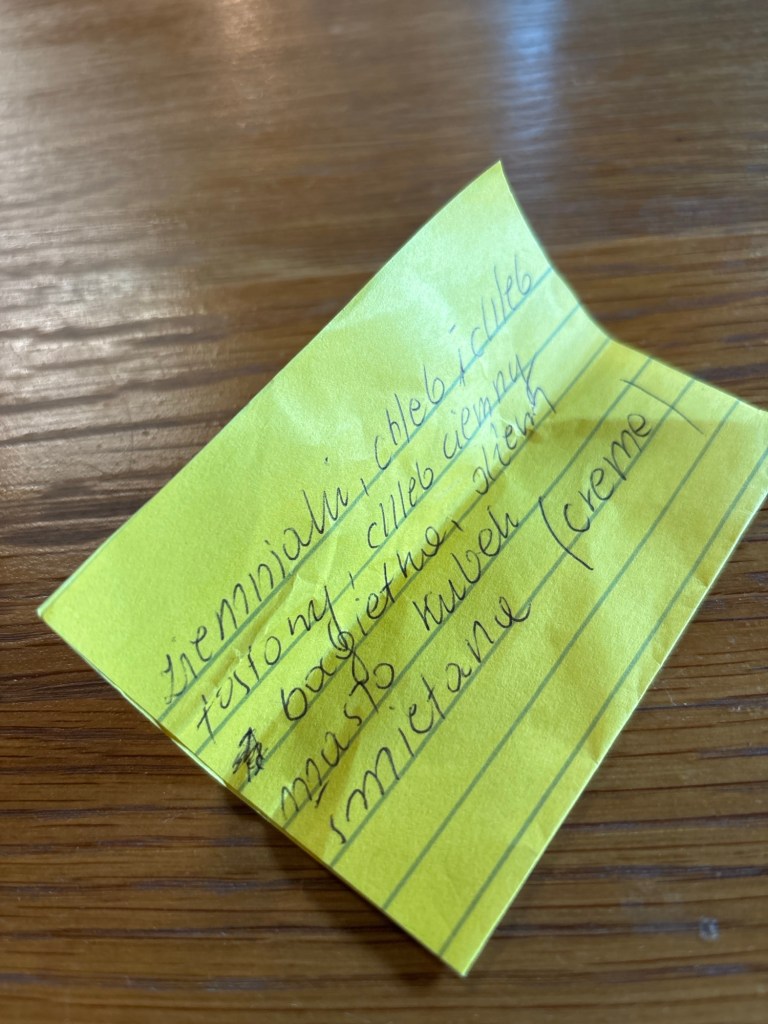 ziemniaki, chleb, chleb
tostony, chleb ciemny
bagietka, dżem
masło kubek
śmietana (creme)